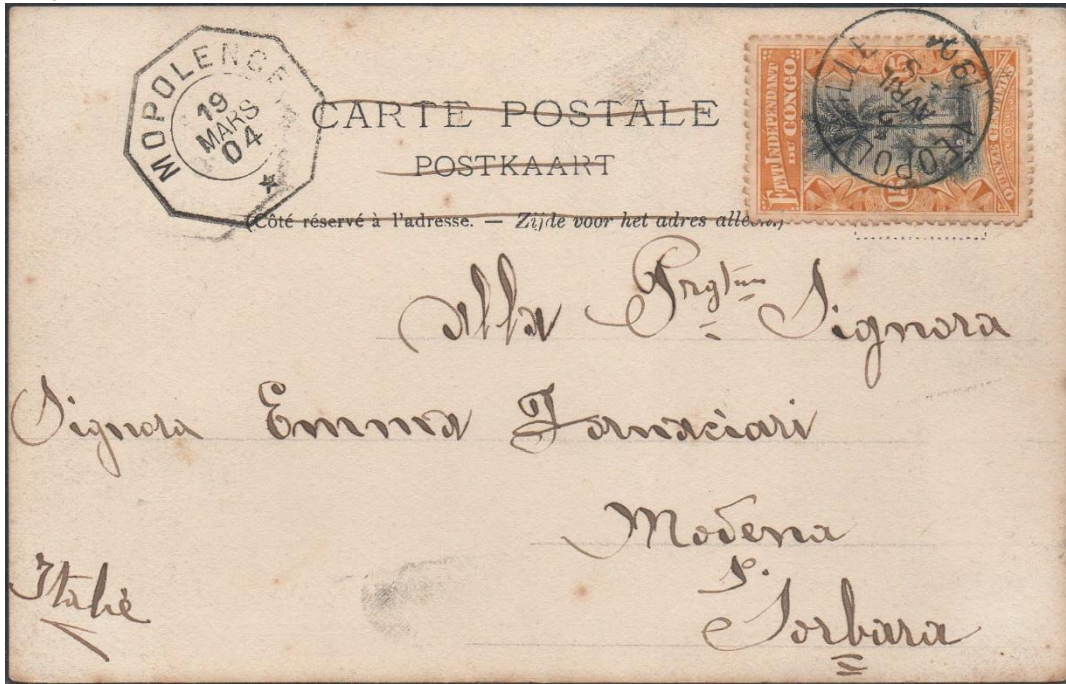 MOPOLENGE
19
MARS
04
CARTE POSTALE
POSTKAART
(Côté réservé à l'adresse. — Zijde voor het adres alleen.)
ETAT INDÉPENDANT
DU CONGO
15
QUINZE CENTIMES
LÉOPOLDVILLE
5
AVRIL
1904
Alla Prgtma Signora
Signora Emma Fornaciari
Modena
p.
Sorbara
Italie